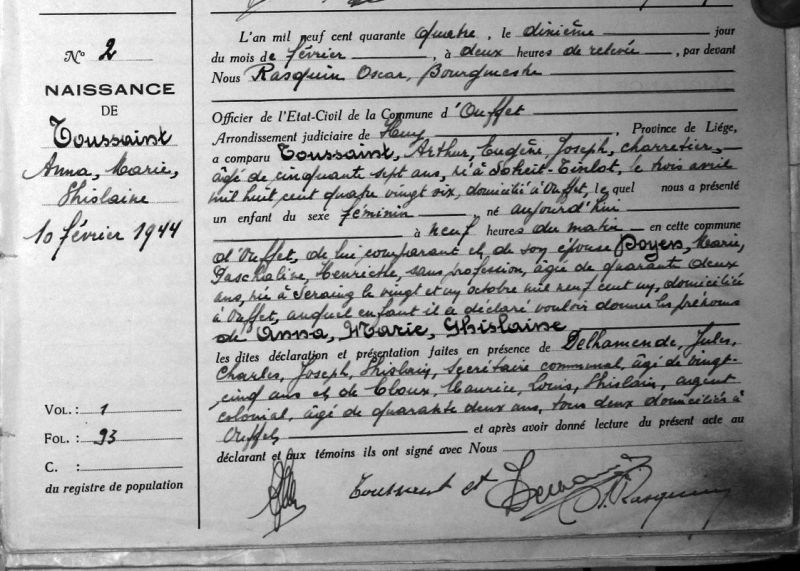 N° 2
NAISSANCE
DE
Toussaint
Anna, Marie,
Ghislaine
10 février 1944
VOL. : 1
FOL. : 93
C. :
du registre de population
L'an mil neuf cent quarante quatre, le dixième jour
du mois de février, à deux heures de relevée, par devant
Nous Rasquin Oscar, Bourgmestre
Officier de l'Etat-Civil de la Commune d'Ouffet
Arrondissement judiciaire de Huy, Province de Liége,
a comparu Toussaint, Arthur, Eugène, Joseph, charretier,
âgé de cinquante sept ans, né à Soheit-Tinlot, le trois avril
mil huit cent quatre vingt six, domicilié à Ouffet, le quel nous a présenté
un enfant du sexe féminin, né aujourd'hui
à neuf heures du matin en cette commune
d'Ouffet, de lui comparant et de son épouse Boyens, Marie,
Paschaline, Henriette, sans profession, âgée de quarante deux
ans, née à Seraing le vingt et un octobre mil neuf cent un, domiciliée
à Ouffet, auquel enfant il a déclaré vouloir donner les prénoms
de Anna, Marie, Ghislaine
les dites déclaration et présentation faites en présence de Delhamende, Jules,
Charles, Joseph, Ghislain, secrétaire communal, âgé de vingt-
cinq ans et de Cloux, Maurice, Louis, Ghislain, agent
colonial, âgé de quarante deux ans, tous deux domiciliés à
Ouffet et après avoir donné lecture du présent acte au
déclarant et aux témoins ils ont signé avec Nous
Toussaint
Rasquin